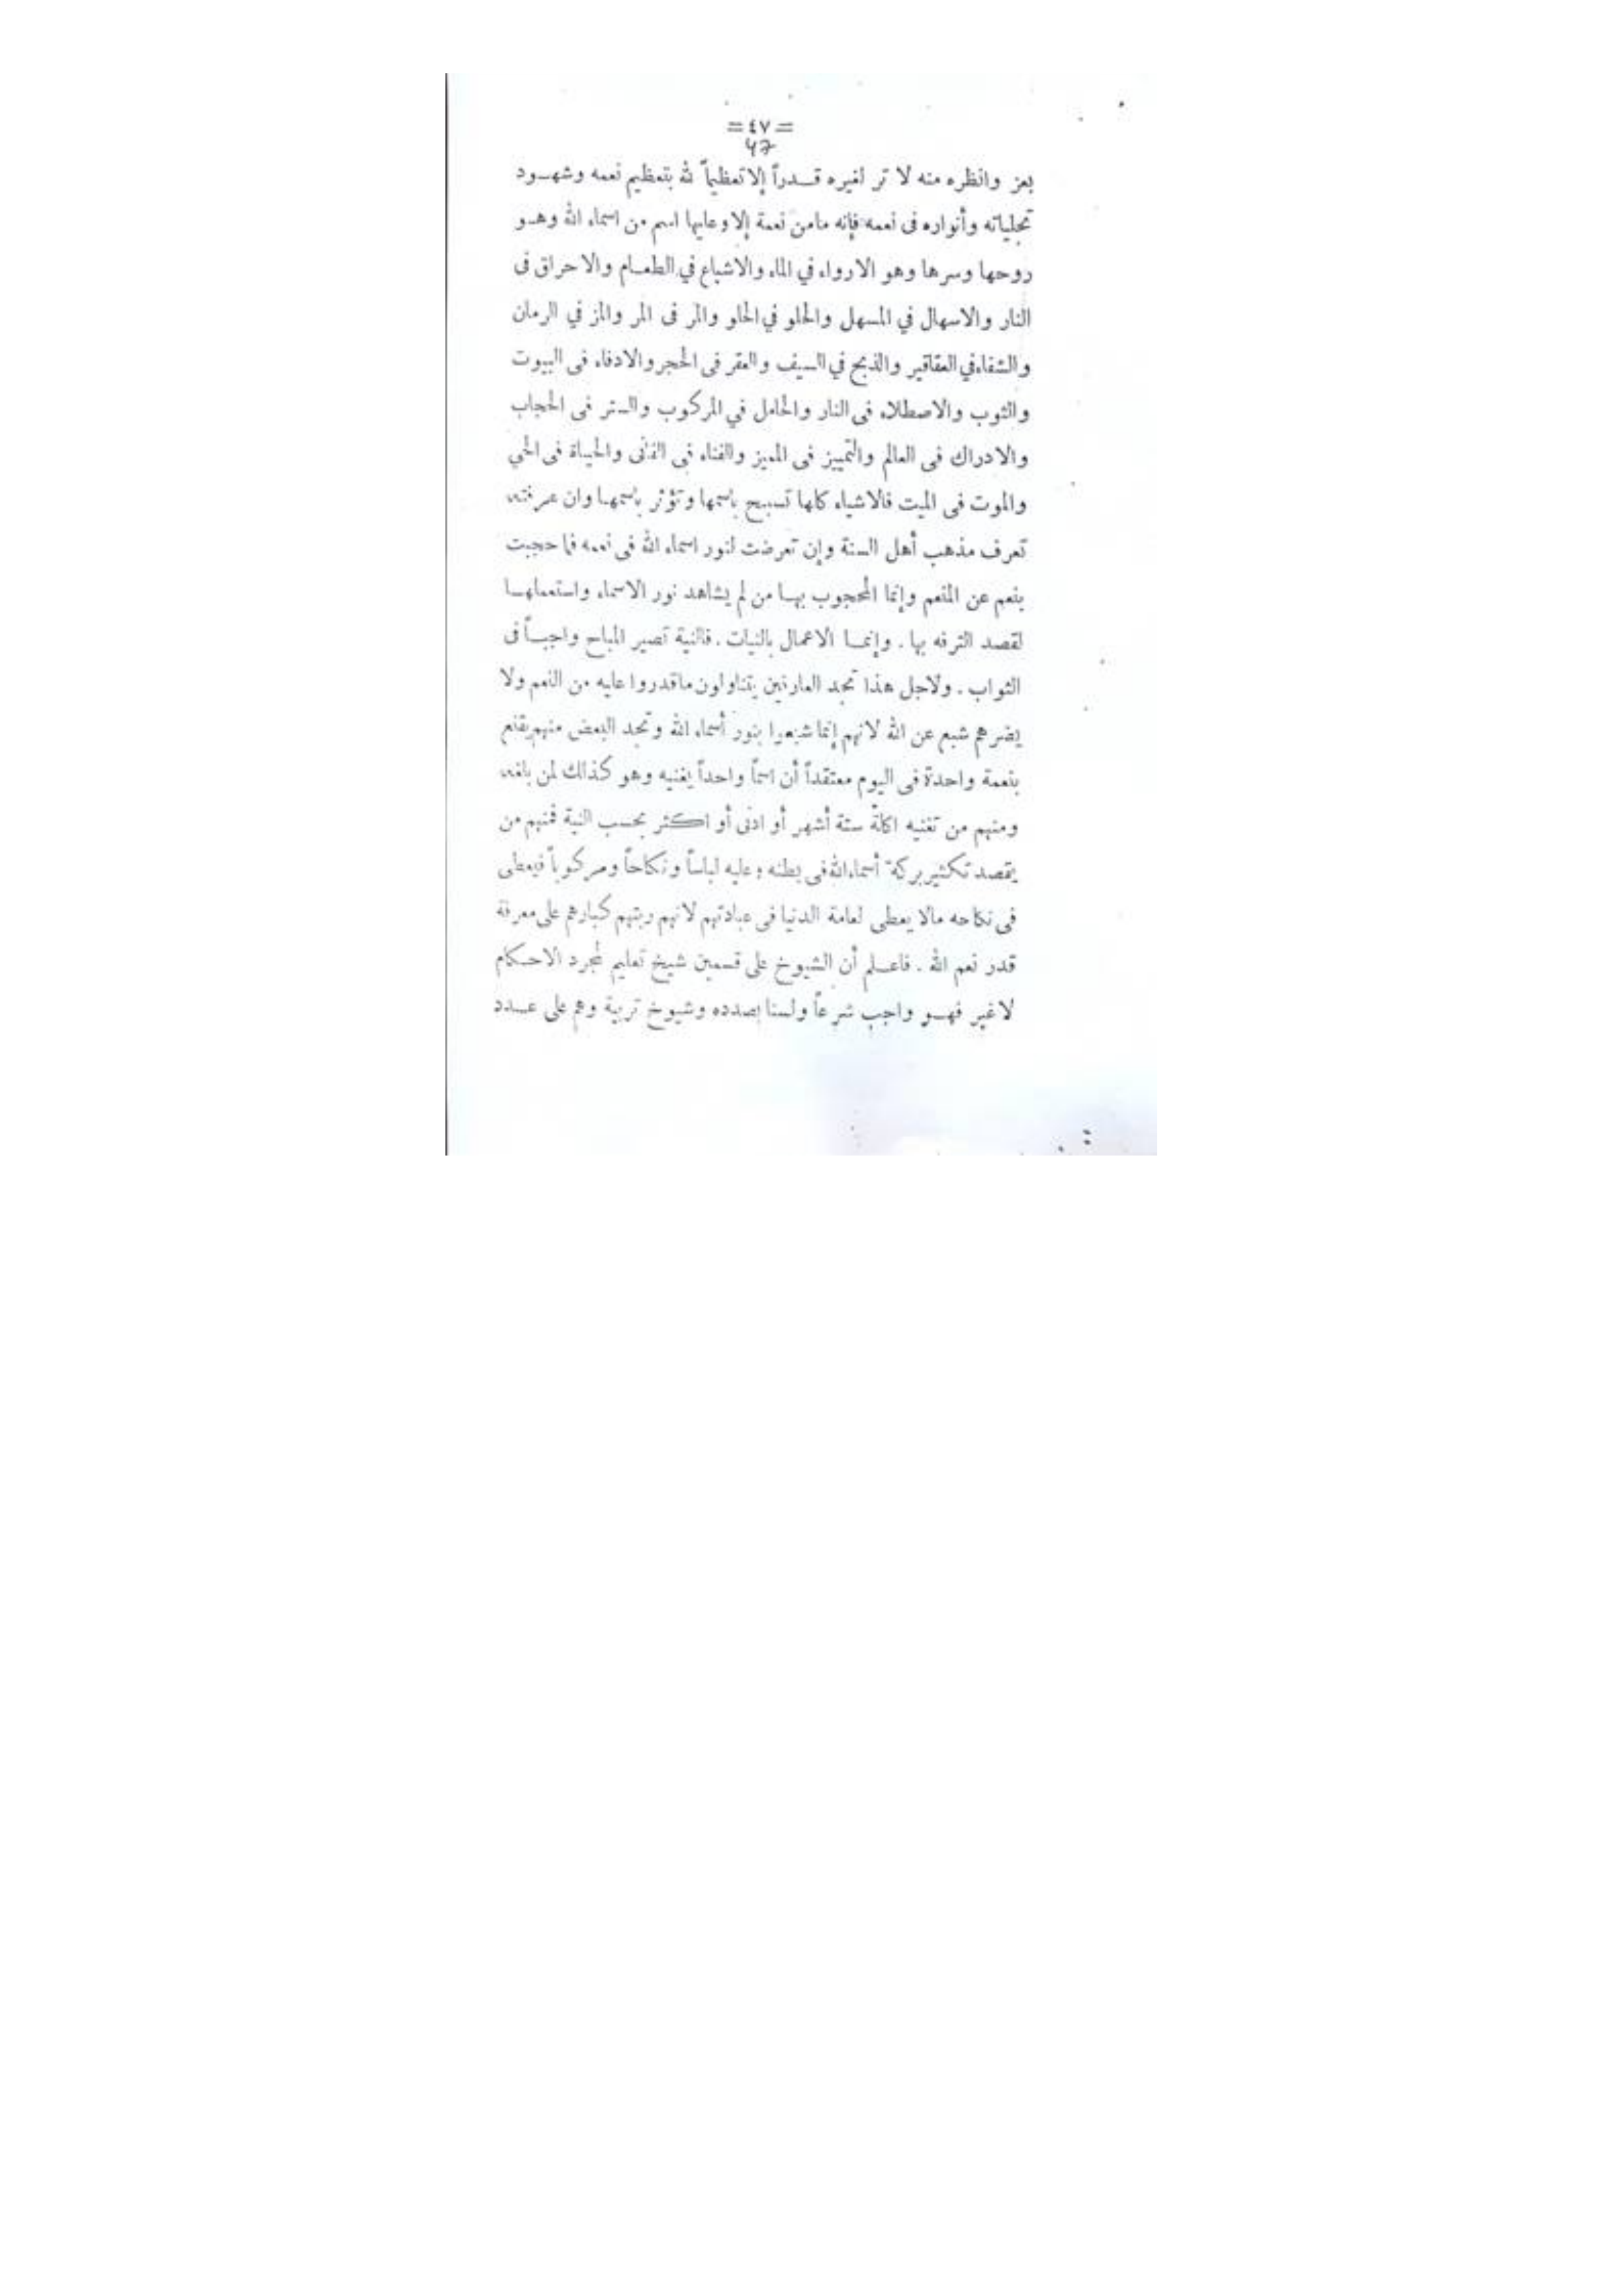 = ٤٧ =
47
بعز وانظره منه لا تر لغيره قـدراً إلا تعظيماً لله بتعظيم نعمه وشهـود
تجلياته وأنواره فى نعمه فإنه مامن نعمة إلا وعليها اسم من اسماء الله وهـو
روحها وسرها وهو الارواء في الماء والاشباع في الطعـام والاحراق فى
النار والاسهال في المسهل والحلو في الحلو والمر فى المر والمز في الرمان
والشفاء في العقاقير والذبح في السيف والعقر فى الحجر والادفاء فى البيوت
والثوب والاصطلاء فى النار والحامل في المركوب والستر فى الحجاب
والادراك فى العالم والتمييز فى المميز والفناء فى الفانى والحياة فى الحي
والموت فى الميت فالاشياء كلها تسبح باسمها وتؤثر باسمهـا وان عرفته
تعرف مذهب أهل السنة وإن تعرضت لنور اسماء الله فى نعمه فما حجبت
بنعم عن المنعم وإنما المحجوب بهـا من لم يشاهد نور الاسماء واستعملهـا
لقصد الترفه بها . وإنمـا الاعمال بالنيات . فالنية تصير المباح واجبـاً فى
الثواب . ولاجل هذا تجد العارفين يتناولون ماقدروا عليه من النعم ولا
يضرهم شبع عن الله لانهم إنما شبعوا بنور أسماء الله وتجد البعض منهم يقنع
بنعمة واحدة فى اليوم معتقداً أن اسماً واحداً يغنيه وهو كذلك لمن بلغه
ومنهم من تغنيه اكلة ستة أشهر أو ادنى أو اكثر بحسب النية فمنهم من
يقصد تكثير بركة أسماء الله فى بطنه وعليه لباساً ونكاحاً ومركوباً فيعطى
فى نكاحه مالا يعطى لعامة الدنيا فى عبادتهم لانهم ربتهم كبارهم على معرفة
قدر نعم الله . فاعـلم أن الشيوخ على قسمين شيخ تعليم لمجرد الاحـكام
لا غير فهـو واجب شرعاً ولسنا بصدده وشيوخ تربية وهم على عـدد